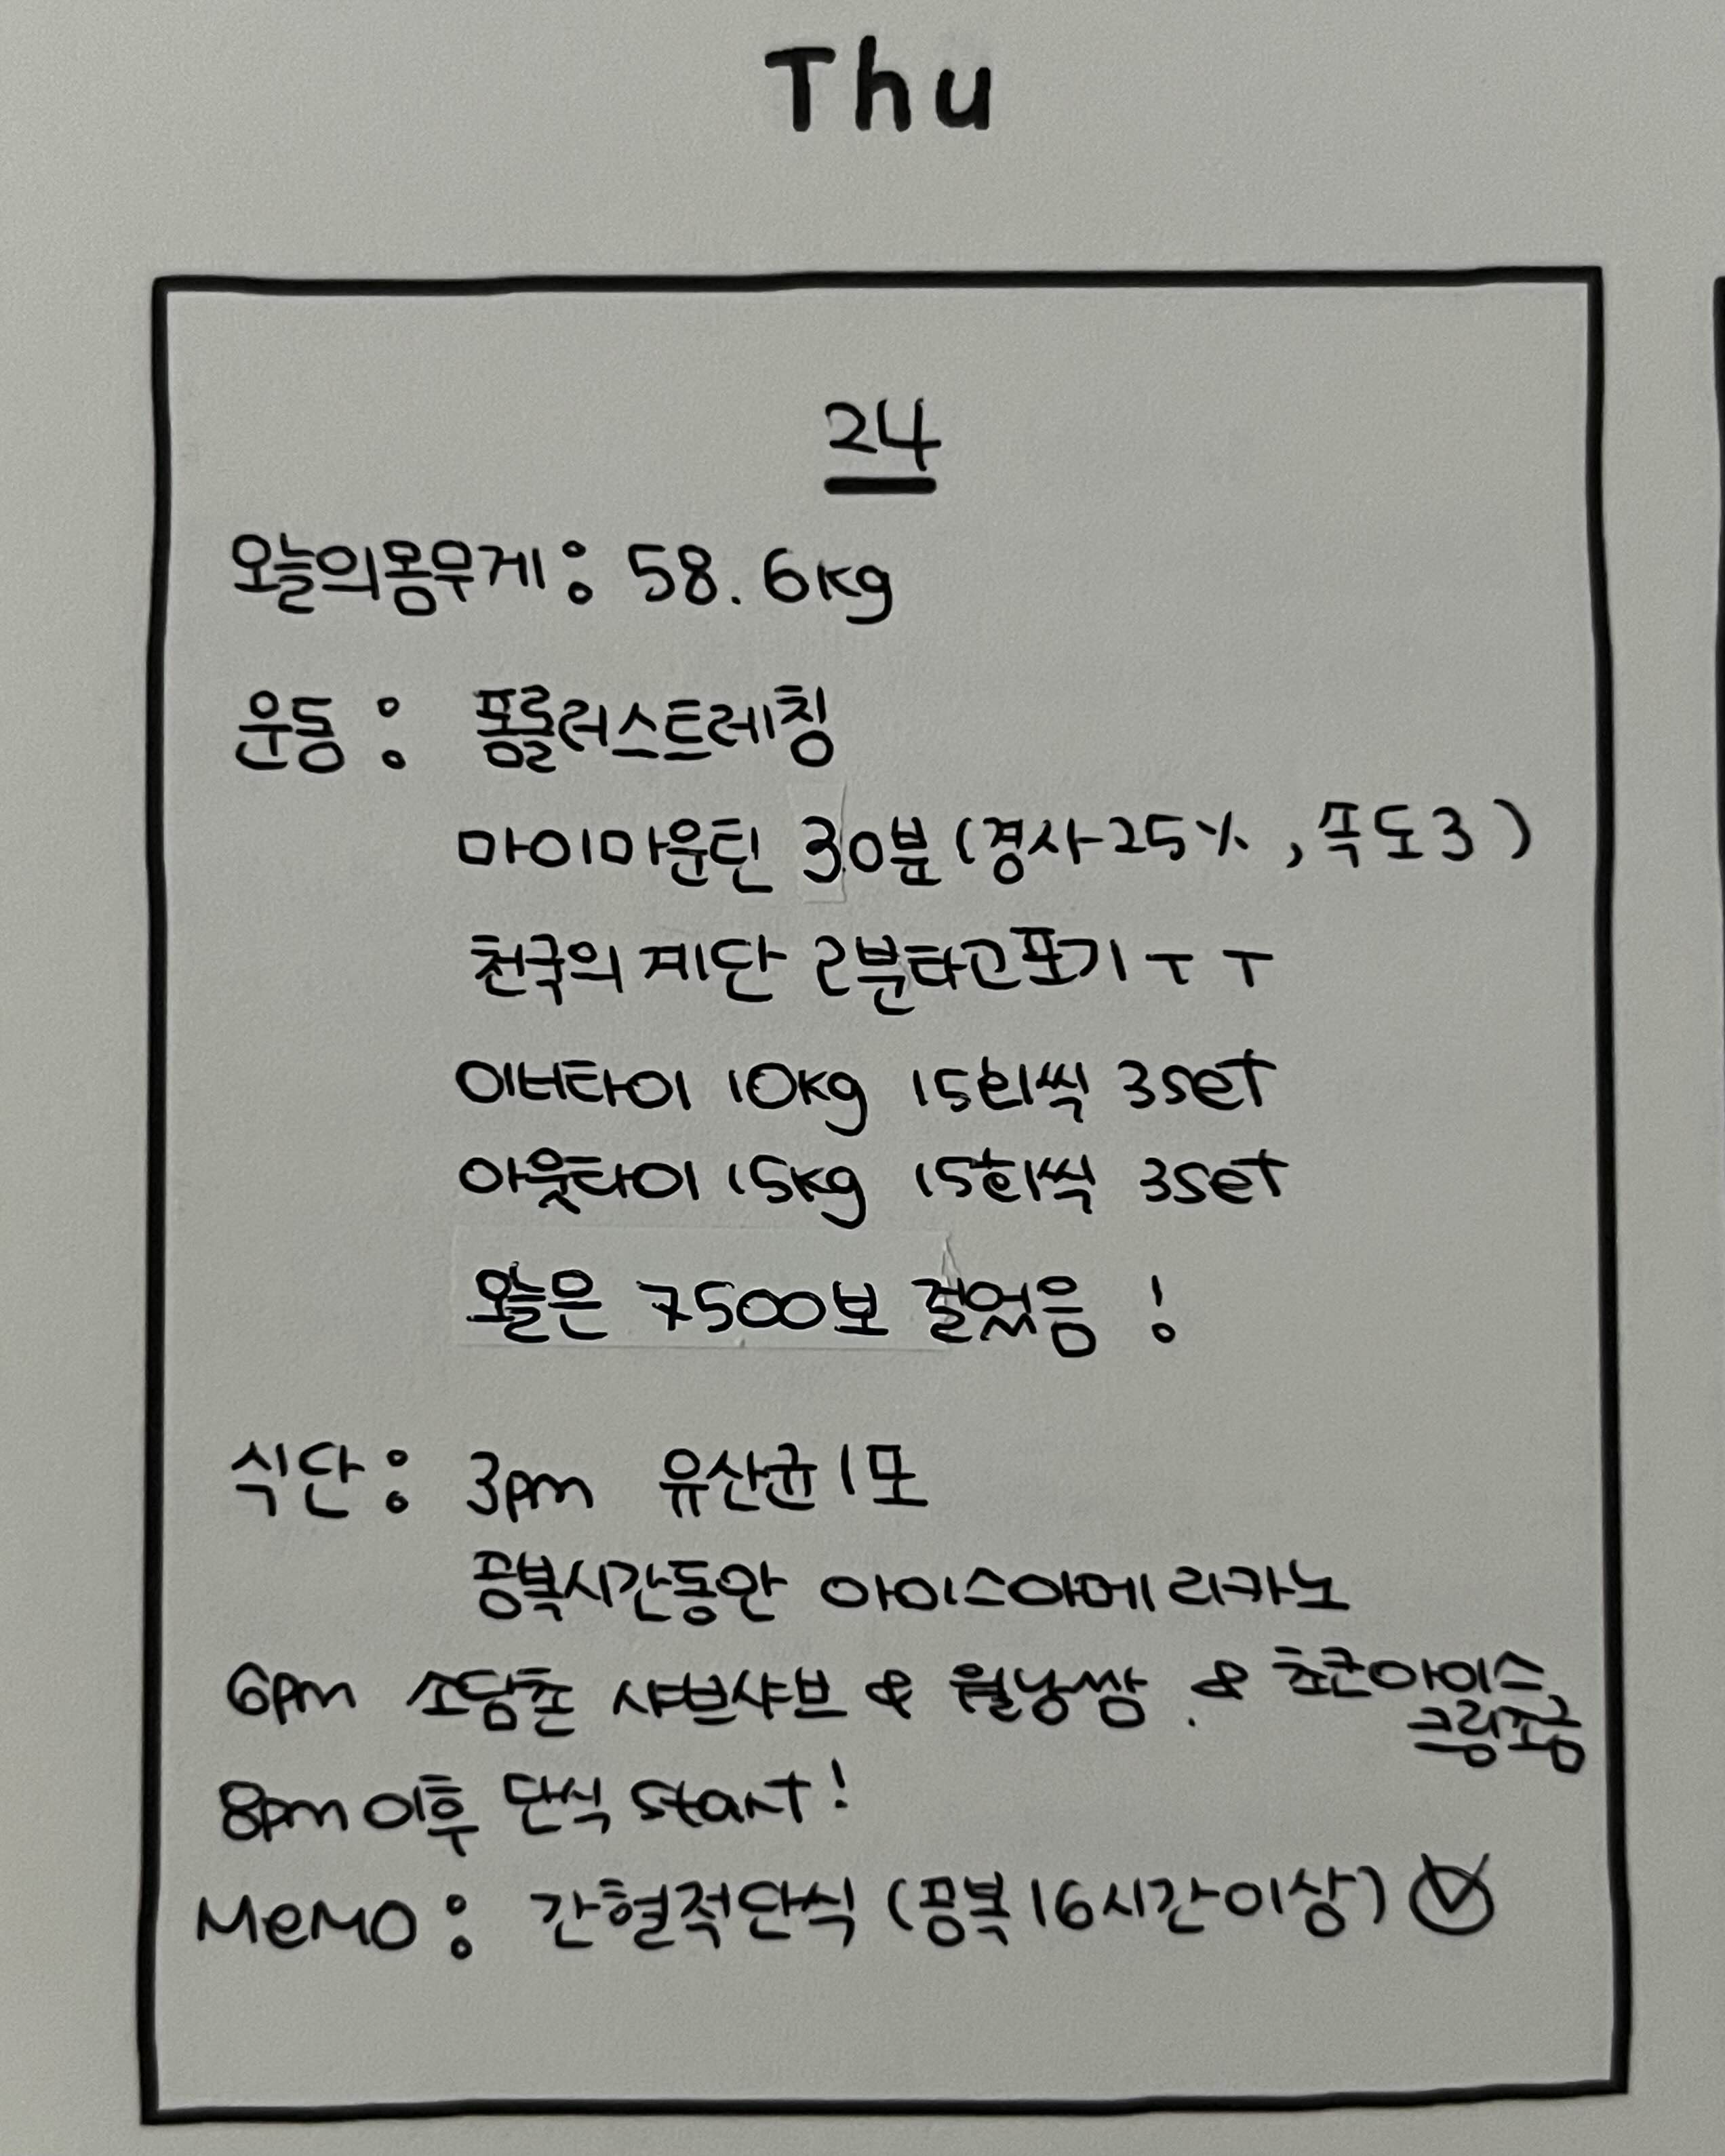 Thu
24
오늘의몸무게: 58.6kg
운동: 폼롤러스트레칭
마이마운틴 30분(경사25%, 속도3)
천국의 계단 2분타고포기ㅜㅜ
이너타이 10kg 15회씩 3set
아웃타이 15kg 15회씩 3set
오늘은 7500보 걸었음!
식단: 3pm 유산균1포
공복시간동안 아이스아메리카노
6pm 소담촌 샤브샤브 & 월남쌈. & 초코아이스
크림조금
8pm이후 단식 start!
MeMO: 간헐적단식 (공복16시간이상)